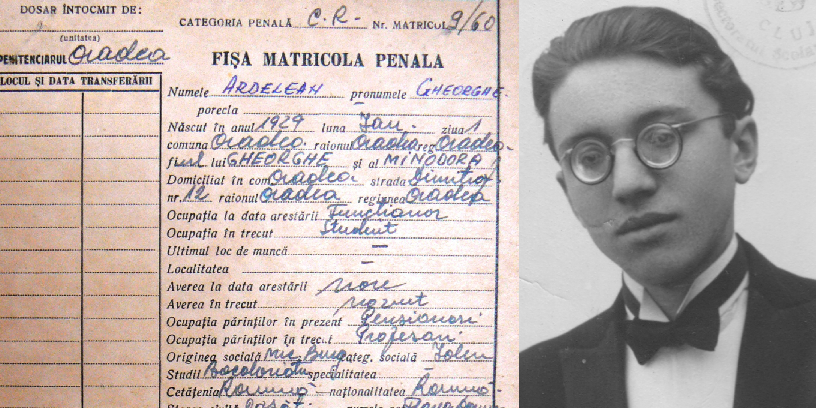 DOSAR ÎNTOCMIT DE:
(unitatea)
PENITENCIARUL Oradea
LOCUL ȘI DATA TRANSFERĂRII
CATEGORIA PENALĂ C.R- Nr. MATRICOL 9/60
FIȘA MATRICOLA PENALA
Numele ARDELEAN pronumele GHEORGHE.
porecla –
Născut în anul 1929 luna Ian. ziua 1
comuna Oradea. raionul Oradea reg. Oradea.
fiul lui GHEORGHE și al MINODORA
Domiciliat în com Oradea strada Dimitrof
nr. 12 raionul Oradea regiunea Oradea
Ocupația la data arestării Funcționar
Ocupația în trecut Student
Ultimul loc de muncă –
Localitatea –
Averea la data arestării
Averea în trecut
Ocupația părinților în prezent Pensionari
Ocupația părinților în trecut Profesori
Originea socială Mic. Burg categ. socială
Studii specialitatea –
Cetățenia Română naționalitatea Română